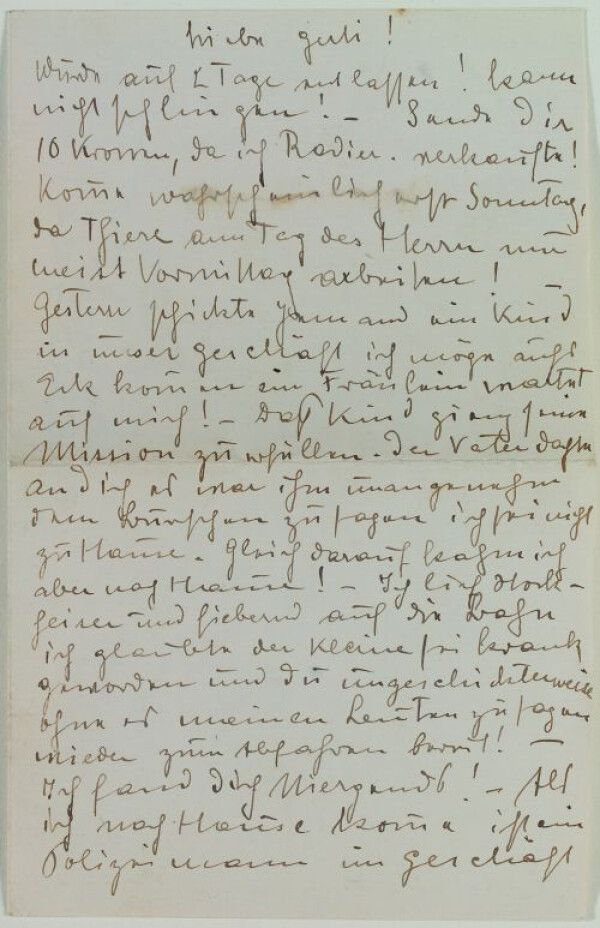 Liebe Guti!
Wurde auf 2 Tage entlassen! kann
nicht schlingen! – Sende Dir
10 Kronen, da ich Radier. verkaufte!
Kome wahrscheinlich erst Sonntag,
da Thiere am Tag des Herrn nur
meist Vormittag arbeiten! –
Gestern schickte Jemand ein Kind
in unser Geschäft ich möge aufs
Eck komen ein Fräulein wartet
auf mich! – Daß Kind gieng seine
Mission zu erfüllen. Der Vater dachte
an dich es war ihm unangenehm
dem Burschen zu sagen ich sei nicht
zu Hause. Gleich darauf kahm ich
aber nach Hause! – Ich lief stock-
heiser und fiebernd auf die Bahn
ich glaubte der Kleine sei krank
geworden und du ungeschickterweise
ohne es meinen Leuten zu sagen
wieder zum Abfahren bereit! –
Ich fand dich Niergends! – Als
ich nach Hause kome ist ein
Polizeimann im Geschäft